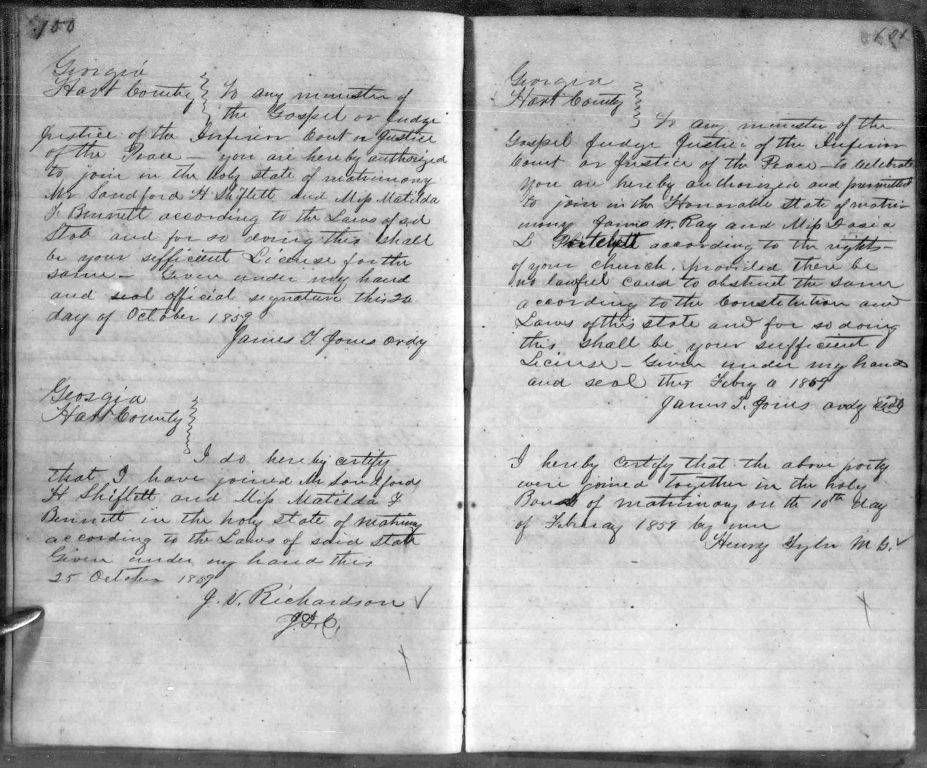 100
Georgia
Hart County } To any minister of
the Gospel or Judge
Justice of the Inferior Court or Justice
of the Peace – you are hereby authorized
to join in the holy state of matrimony
Mr Sandford H Shiflett and Miss Matilda
F Bennett according to the Laws of sd
State and for so doing this shall
be your sufficient License for the
same – Given under my hand
and seal official signature this 24
day of October 1859
James T Jones ordy
Georgia
Hart County }
I do hereby certify
that I have joined Mr Sandford
H Shiflett and Miss Matilda F
Bennett in the holy state of matrimony
according to the Laws of said State
Given under my hand this
25 October 1859
J. V. Richardson
Georgia
Hart County }
To any minister of the
Gospel Judge Justice of the Inferior
Court or Justice of the Peace – to celebrate
you are hereby authorized and permitted
to join in the Honorable state of matri-
mony James W. Ray and Miss
L. according to the rights
of your church, provided there be
no lawful caus to obstruct the same
according to the Constitution and
Laws of this state and for so doing
this shall be your sufficient
License – Given under my hand
and seal this Febry 1859
James T. Jones ordy
I hereby certify that the above party
were joined together in the holy
Bonds of matrimony on the 10th day
of February 1859 by me
Henry Tyler M. G.